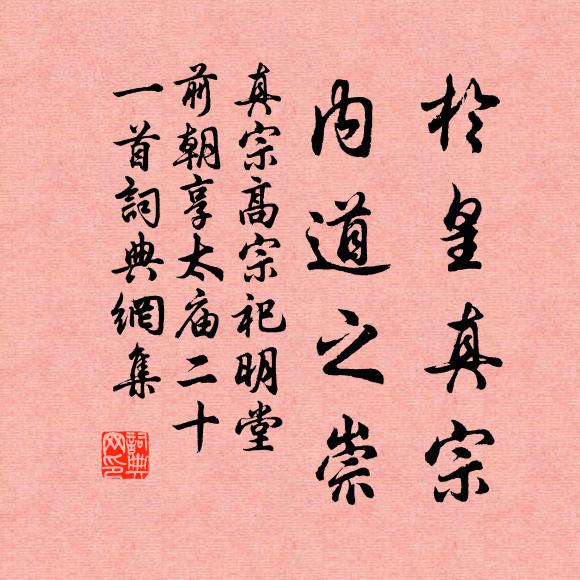 於皇真宗
内道之崇
真宗高宗祀明堂
前朝享太庙二十
一首詞典網集
詞典网印